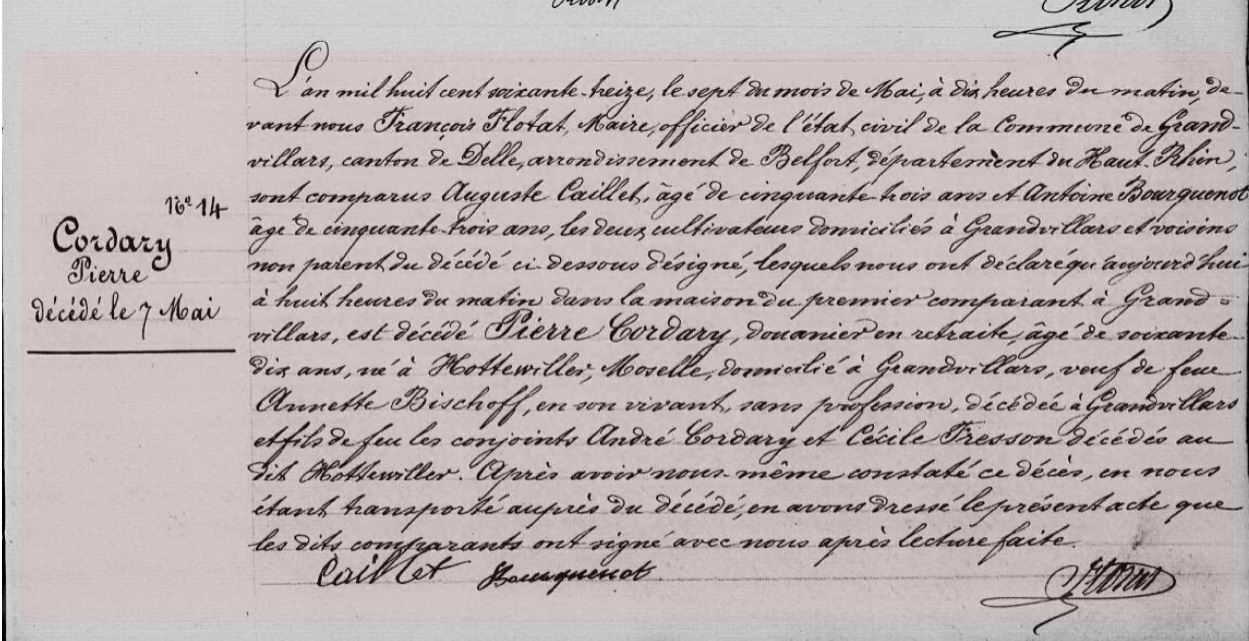 Nº 14
Cordary
Pierre
décédé le 7 Mai
L'an mil huit cent soixante-treize, le sept du mois de Mai, à dix heures du matin, de-
vant nous François Flotat, Maire, officier de l'état civil de la Commune de Grand-
villars, canton de Delle, arrondissement de Belfort, département du Haut-Rhin,
sont comparus Auguste Caillet, âgé de cinquante-trois ans et Antoine Bourquenot
âgé de cinquante-trois ans, les deux cultivateurs domiciliés à Grandvillars et voisins
non parent du décédé ci-dessous désigné, lesquels nous ont déclaré qu'aujourd'hui
à huit heures du matin dans la maison du premier comparant à Grand=
villars, est décédé Pierre Cordary, douanier en retraite, âgé de soixante-
dix ans, né à Hottewiller, Moselle, domicilié à Grandvillars, veuf de feue
Annette Bischoff, en son vivant, sans profession, décédée à Grandvillars
et fils de feu les conjoints André Cordary et Cécile Fresson décédés au
dit Hottewiller. Après avoir nous-même constaté ce décès, en nous
étant transporté auprès du décédé, en avons dressé le présent acte que
les dits comparants ont signé avec nous après lecture faite.
Caillet Bourquenot